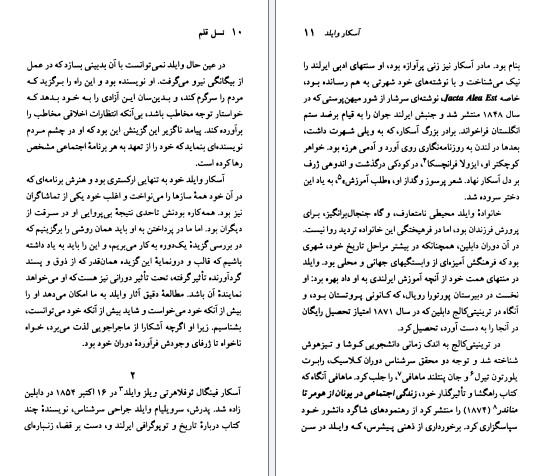 ۱۰ نسل قلم
در عین حال وایلد نمی‌توانست با آن بدبینی بسازد که در عمل
از بیگانگی نیرو می‌گرفت. او نویسنده بود و این راه را برگزید که
مردم را سرگرم کند، و بدین‌سان این آزادی را به خود بدهد که
خواستار توجه مخاطب باشد، بی‌آنکه انتظارات اخلاقی مخاطب را
برآورده کند. پیامد ناگزیر این گزینش این بود که او در چشم مردم
نویسنده‌ای بنماید که خود را از تعهد به هر برنامهٔ اجتماعی مشخص
رها کرده است.
آسکار وایلد خود به تنهایی ارکستری بود و هنرش برنامه‌ای که
در آن خود همهٔ سازها را می‌نواخت و اغلب خود یکی از تماشاگران
نیز بود. همه‌کاره بودنش تاحدی نتیجهٔ بی‌پروایی او در سرقت از
دیگران بود. اما ما در پرداختن به او باید همان روشی را برگزینیم که
در بررسی گزیدهٔ یک‌دوره به کار می‌بریم، و این را باید به یاد داشته
باشیم که قالب و درونمایهٔ این گزیده همان‌قدر که از ذوق و پسند
گردآورنده تأثیر گرفته، تحت تأثیر دورانی نیز هست که او می‌خواهد
نمایندهٔ آن باشد. مطالعهٔ دقیق آثار وایلد به ما امکان می‌دهد او را
بیش از آنکه خود می‌خواست و شاید بیش از آنکه خود می‌توانست،
بشناسیم. زیرا او اگرچه آشکارا از ماجراجویی لذت می‌برد، خواه
ناخواه تا ژرفای وجودش فرآوردهٔ دوران خود بود.
۲
آسکار فینگال ئوفلاهرتی ویلز وایلد۳ در ۱۶ اکتبر ۱۸۵۴ در دابلین
زاده شد. پدرش، سرویلیام وایلد جراحی سرشناس، نویسندهٔ چند
کتاب دربارهٔ تاریخ و توپوگرافی ایرلند و، دست بر قضا، زنباره‌ای
آسکار وایلد ۱۱
بنام بود. مادر آسکار نیز زنی پرآوازه بود، او سنتهای ادبی ایرلند را
نیک می‌شناخت و با نوشته‌های خود شهرتی به هم رسانده بود،
خاصه Jacta Alea Est، نوشته‌ای سرشار از شور میهن‌پرستی که در
سال ۱۸۴۸ منتشر شد و جنبش ایرلند جوان را به قیام برضد ستم
انگلستان فراخواند. برادر بزرگ آسکار، که به ویلی شهرت داشت،
بعدها در لندن به روزنامه‌نگاری روی آورد و آدمی هرزه بود. خواهر
کوچکتر او، ایزولا فرانچسکا۴، در کودکی درگذشت و اندوهی ژرف
بر دل آسکار نهاد. شعر پرسوز و گداز او، «طلب آمرزش»۵، به یاد این
دختر سروده شد.
خانوادهٔ وایلد محیطی نامتعارف، و گاه جنجال‌برانگیز، برای
پرورش فرزندان بود، اما در فرهیختگی این خانواده تردید روا نیست.
در آن دوران دابلین، همچنانکه در بیشتر مراحل تاریخ خود، شهری
بود که فرهنگش آمیزه‌ای از وابستگیهای جهانی و محلی بود. وایلد
در منتهای همت خود از آنچه آموزش ایرلندی به او داد بهره برد: او
نخست در دبیرستان پورتورا رویال، که کانونی پروتستان بود، و
آنگاه در ترینیتی‌کالج دابلین که در سال ۱۸۷۱ امتیاز تحصیل رایگان
در آنجا را به دست آورد، تحصیل کرد.
در ترینیتی‌کالج به اندک زمانی دانشجویی کوشا و تیزهوش
شناخته شد و توجه دو محقق سرشناس دوران کلاسیک، رابرت
یلورتون تیرل۶ و جان پنتلند ماهافی۷، را جلب کرد. ماهافی آنگاه که
کتاب راهگشا و تأثیرگذار خود، زندگی اجتماعی در یونان از هومر تا
مناندر۸ (۱۸۷۴) را منتشر کرد از رهنمودهای شاگرد دانشور خود
سپاسگزاری کرد. برخورداری از ذهنی پیشرس، که وایلد در سن